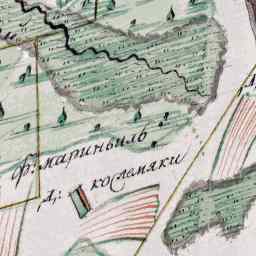 ф: мариньиль
д: коселмяки